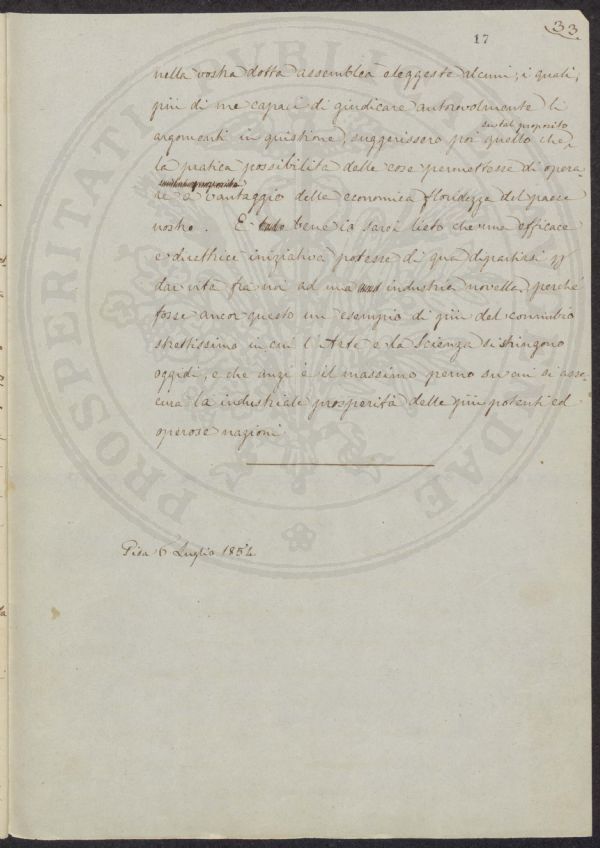 33
17
nella vostra dotta assemblea eleggeste alcuni, i quali,
più di me capaci di giudicare autorevolmente li
su tal proposito
argomenti in quistione, suggerissero poi quello che
la pratica possibilità delle cose permettesse di opera-
re a vantaggio della economica floridezza del paese
nostro. E bene io sarei lieto che una efficace
e direttrice iniziativa potesse di qua dipartirsi p
dar vita fra noi ad una industria novella, perché
fosse ancor questo un esempio di più del connubio
strettissimo in cui l'Arte e la Scienza si stringono
oggidì, e che anzi è il massimo perno su cui si assi-
cura la industriale prosperità delle più potenti ed
operose nazioni
Pisa 6 Luglio 1854
PROSPERITATI PUBLICAE AUGENDAE